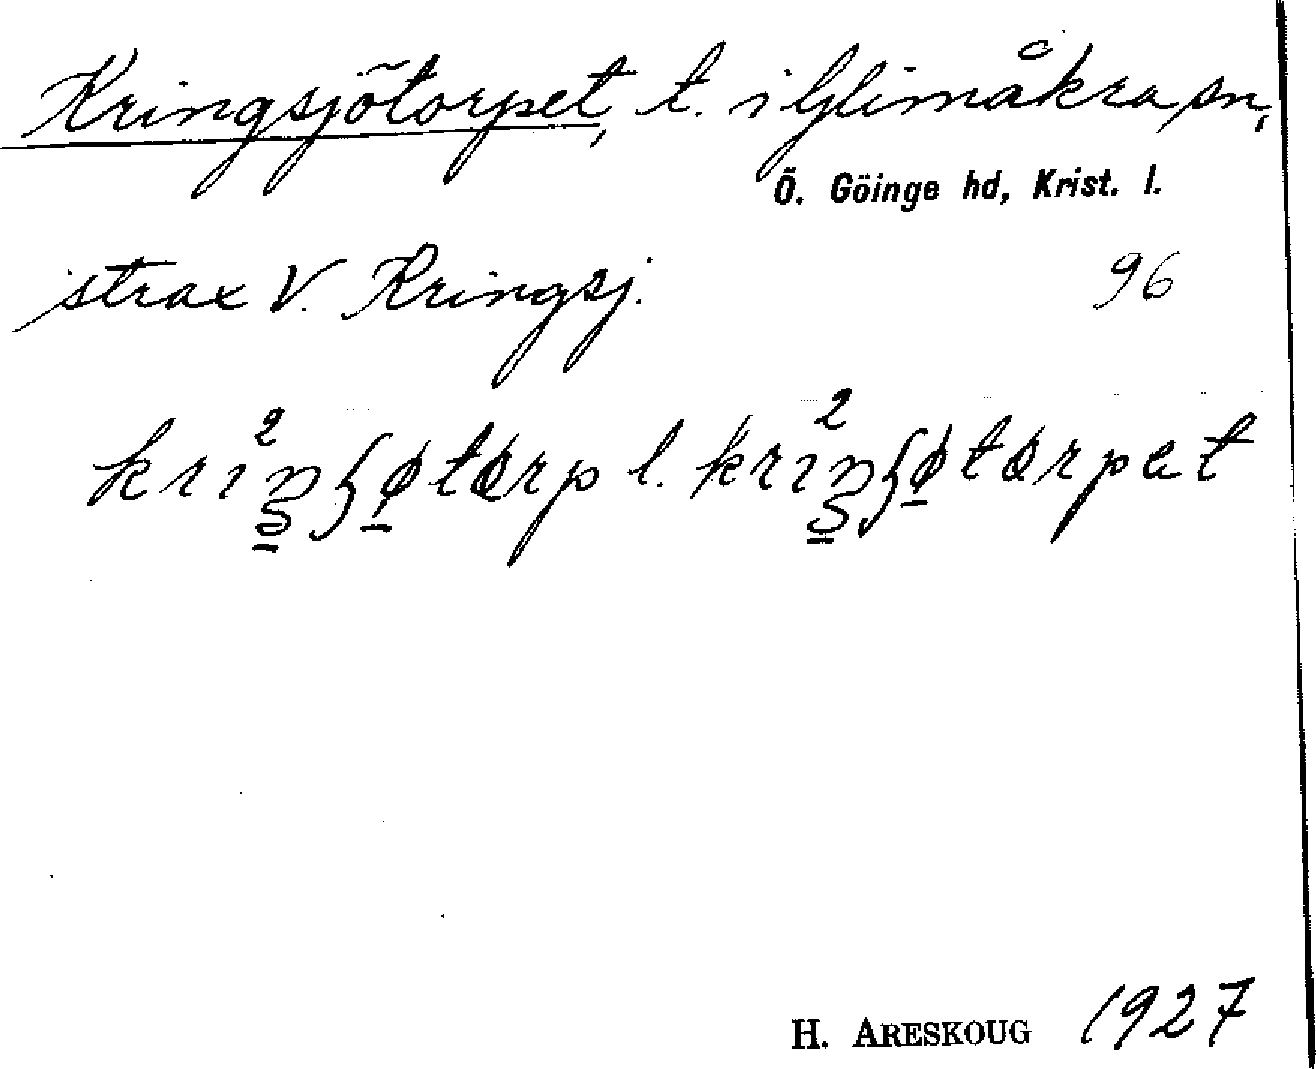 Kringsjötorpet, t. i Glimåkra sn,
Ö. Göinge hd, Krist. l.
strax V. Kringsj. 96
l.
H. ARESKOUG 1927